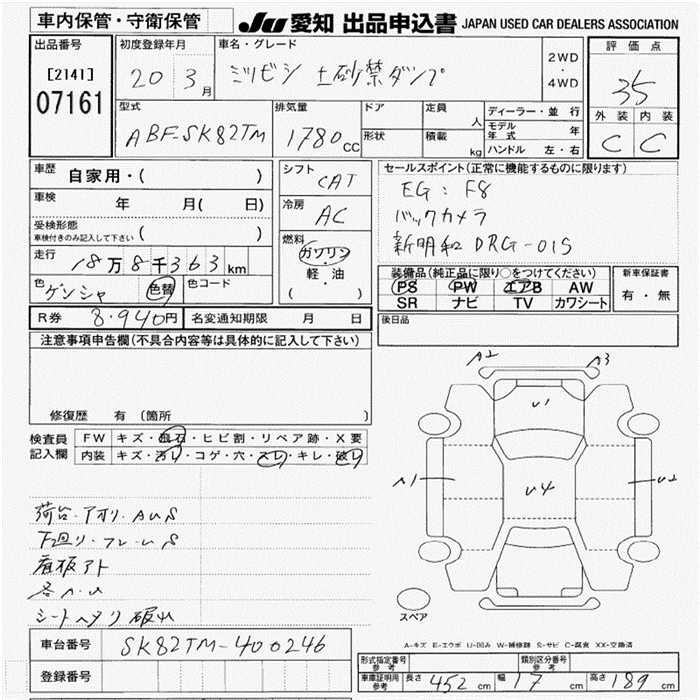 車内保管・守衛保管
JU 愛知 出品申込書 JAPAN USED CAR DEALERS ASSOCIATION
出品番号
[2141]
07161
初度登録年月
20 3月
車名・グレード
ミツビシ 土砂禁ダンプ
2WD
・
4WD
評価点
35
外装 内装
C C
型式
ABF-SK82TM
排気量
1780cc
ドア
形状
定員 人
積載 kg
ディーラー・並行
モデル年式 年
ハンドル 左・右
車歴 自家用・( )
車検 年 月( 日)
受検形態
車検付きのみ記入して下さい ( )
走行 18万8千363km
色 ゲンシャ 色替 色コード
R券 8.940円 名変通知期限 月 日
シフト
CAT
冷房
AC
燃料
ガソリン
・
軽・油
( ・ )
セールスポイント(正常に機能するものに限ります)
EG:F8
バックカメラ
新明和 DRG-01S
装備品(純正品に限り○をつけてください)
PS PW エアB AW
SR ナビ TV カワシート
新車保証書
有・無
後日品
注意事項申告欄(不具合内容等は具体的に記入して下さい)
修復歴 有 (箇所 )
検査員
記入欄
FW キズ・飛石・ヒビ割・リペア跡・X要
内装 キズ・汚レ・コゲ・穴・スレ・キレ・破レ
荷台.アオリ.AUS
下廻リ・フレームS
看板アト
各A.U
シートヘタリ破れ
A2 A3
U1
A1 U4 U2
スペア
A-キズ E-エクボ U-凹み W-補修跡 S-サビ C-腐食 XX-交換済
車台番号 SK82TM-400246
登録番号
形式指定番号
参考
類別区分番号
参考
車庫証明用
参考
長さ 452cm 幅 17 cm 高さ 189cm